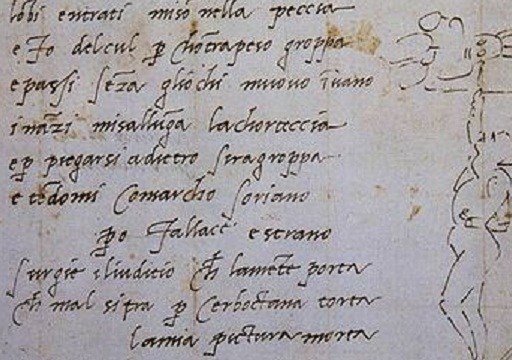 lobi entrati miso nella peccia
e fo del cul p chotrapeso groppa
e passi seza gliochi muouo i uano
inazi misalluga lachorteccia
e p piegarsi adietro siragroppa
e tedomi Comarcho soriano
po fallace e strano
surgie iliuditio ch lamete porta
ch mal si tra p Cerboctana torta
lamia pictura morta